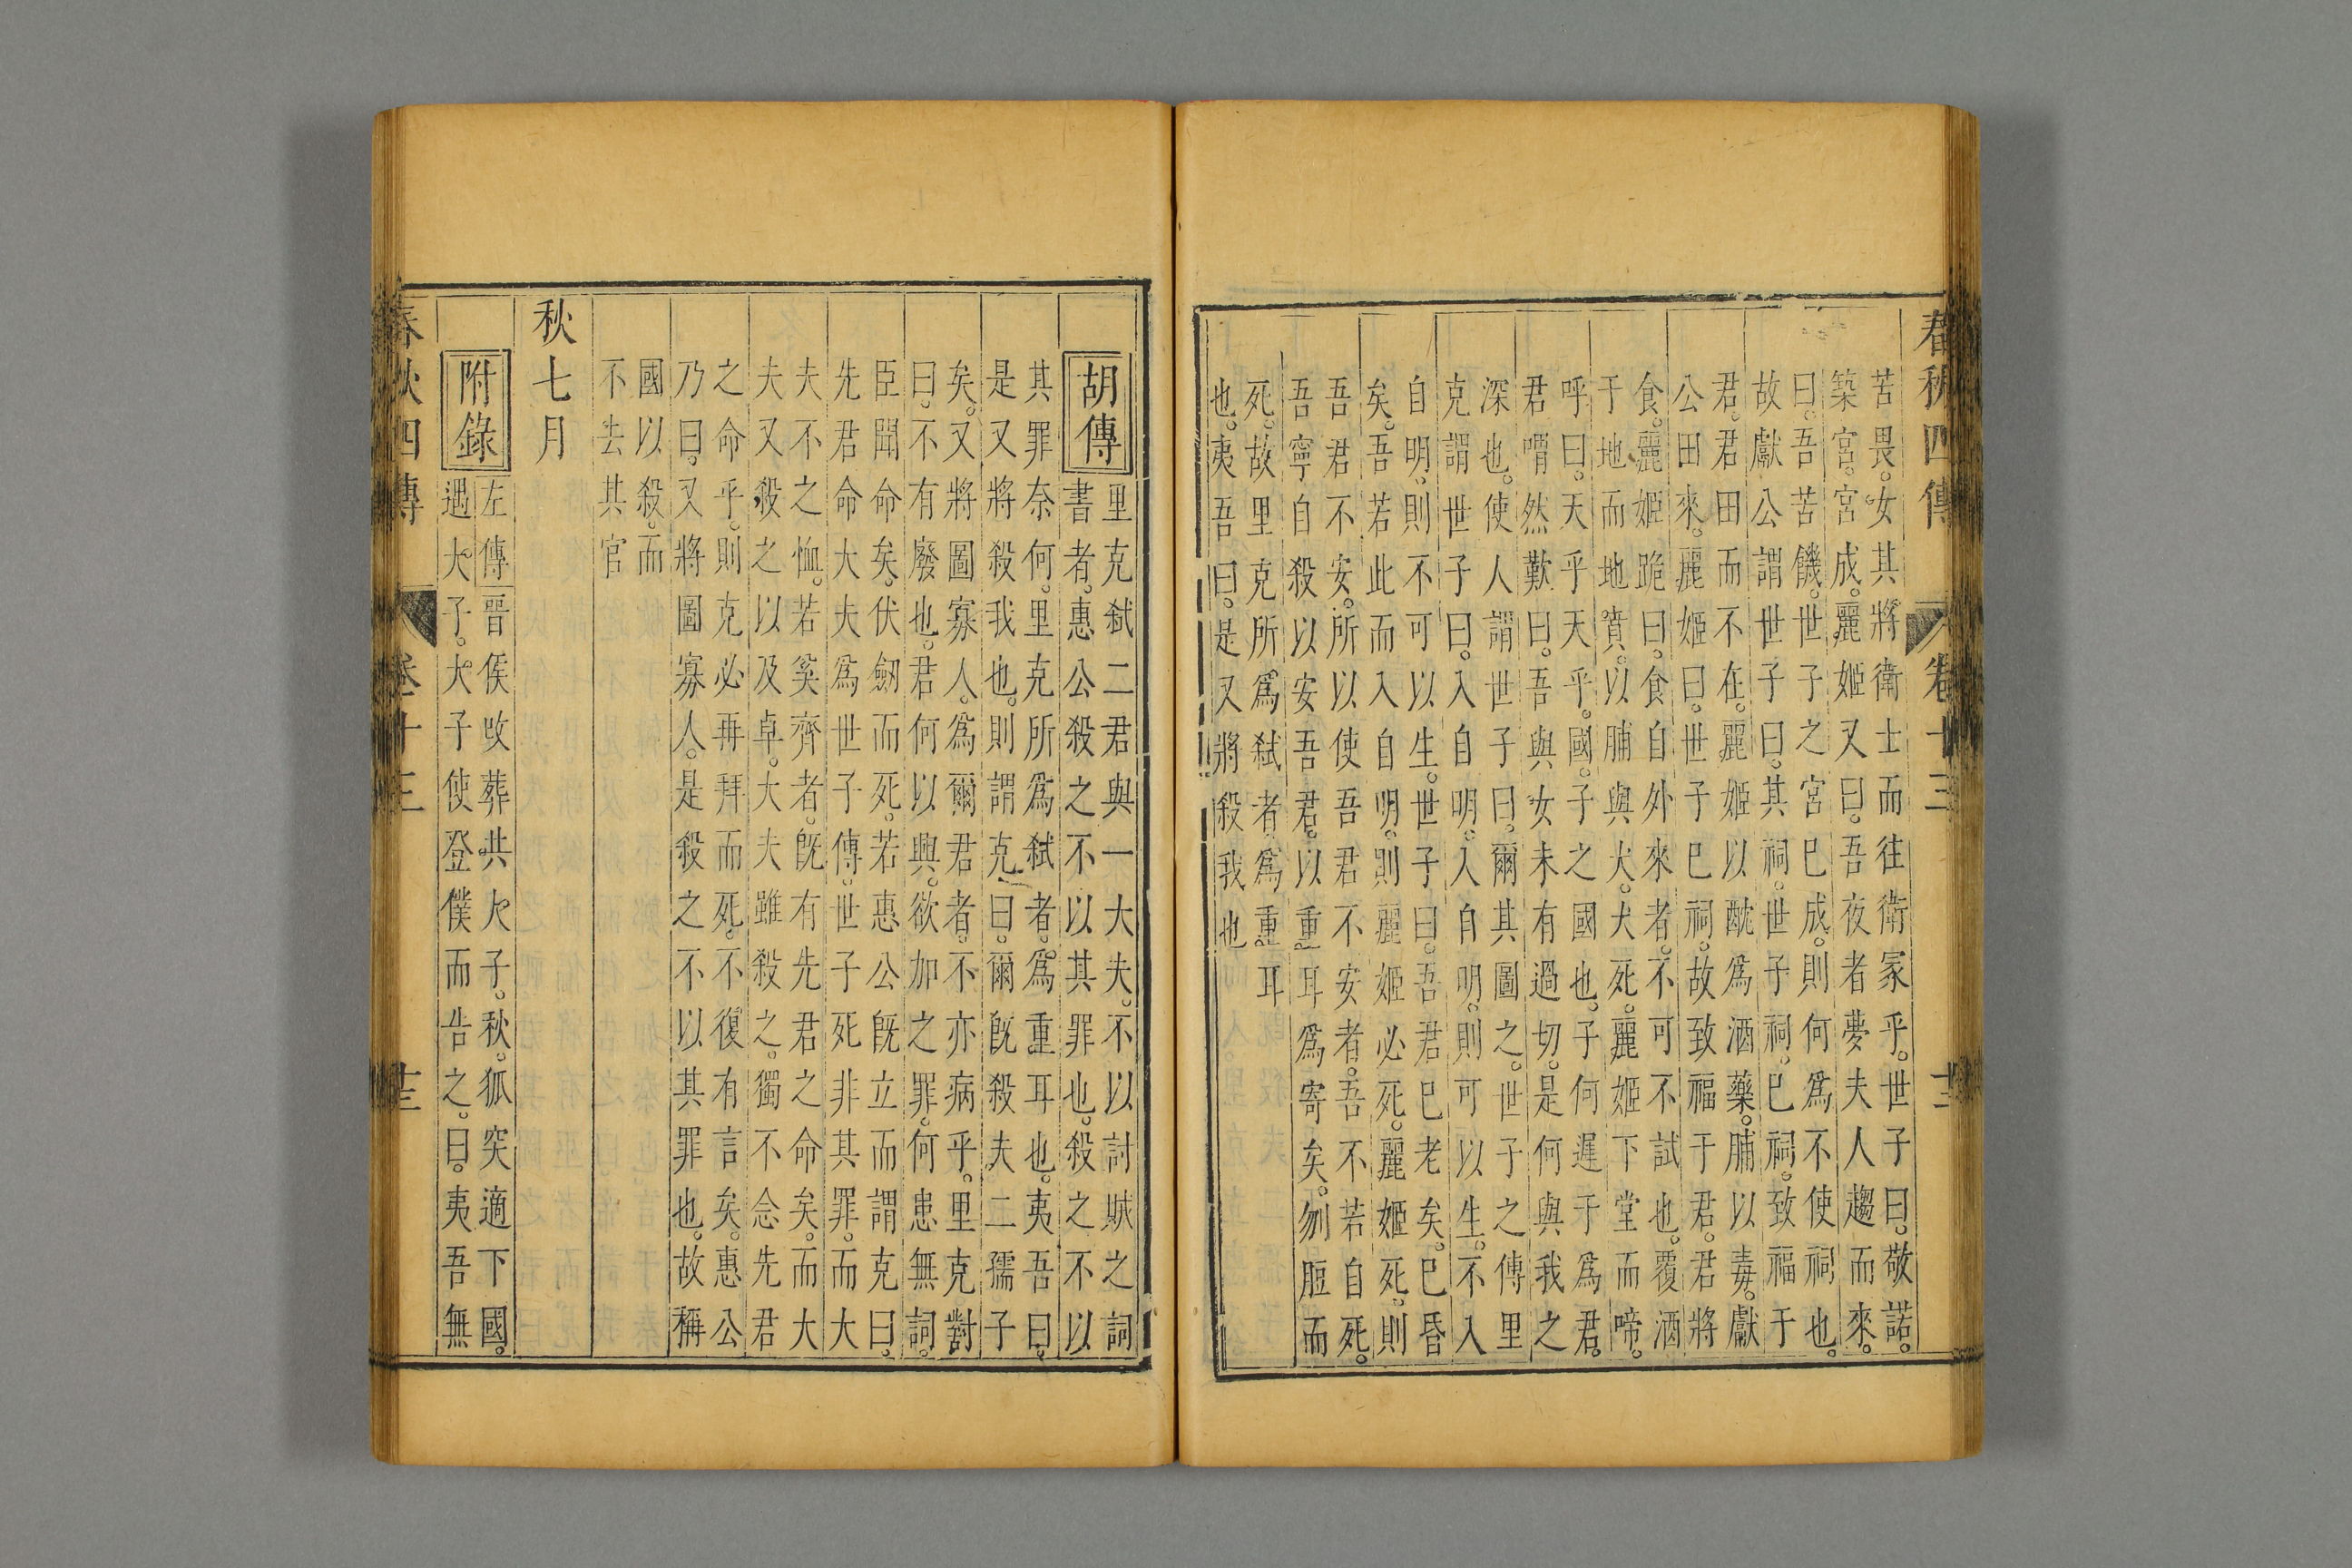 春秋四傳 卷十三 十二
苦畏。女其將衛士而往衛冢乎。世子曰。敬諾。
築宮。宮成。麗姬又曰。吾夜者夢夫人趨而來。
曰。吾苦饑。世子之宮巳成。則何爲不使祠也。
故獻公謂世子曰。其祠。世子祠。巳祠。致福于
君。君田而不在。麗姬以酖爲酒。藥脯以毒。獻
公田來。麗姬曰。世子巳祠。故致福于君。君將
食。麗姬跪曰。食自外來者。不可不試也。覆酒
于地而地賁。以脯與犬。犬死。麗姬下堂而啼。
呼曰。天乎天乎。國。子之國也。子何遲于爲君。
君喟然歎曰。吾與女未有過切。是何與我之
深也。使人謂世子曰。爾其圖之。世子之傅里
克謂世子曰。入自明。入自明。則可以生。不入
自明。則不可以生。世子曰。吾君巳老矣。巳昏
矣。吾若此而入自明。則麗姬必死。麗姬死。則
吾君不安。所以使吾君不安者。吾不若自死。
吾寧自殺以安吾君。以重耳爲寄矣。刎脰而
死。故里克所爲弒者。爲重耳
也。夷吾曰。是又將殺我也
胡傳
里克弒二君與一大夫。不以討賊之詞
書者。惠公殺之不以其罪也。殺之不以
其罪奈何。里克所爲弒者。爲重耳也。夷吾曰。
是又將殺我也。則謂克曰。爾旣殺夫二孺子
矣。又將圖寡人。爲爾君者。不亦病乎。里克對
曰。不有廢也。君何以興。欲加之罪。何患無詞。
臣聞命矣。伏劒而死。若惠公旣立而謂克曰。
先君命大夫爲世子傅。世子死非其罪。而大
夫不之恤。若奚齊者。旣有先君之命矣。而大
夫又殺之以及卓。大夫雖殺之。獨不念先君
之命乎。則克必再拜而死。不復有言矣。惠公
乃曰。又將圖寡人。是殺之不以其罪也。故稱
國以殺。而
不去其官
秋七月
附錄
左傳 晉侯改葬共大子。秋。狐突適下國。
遇大子。大子使登僕而告之。曰。夷吾無
春秋四傳 卷十三 十三